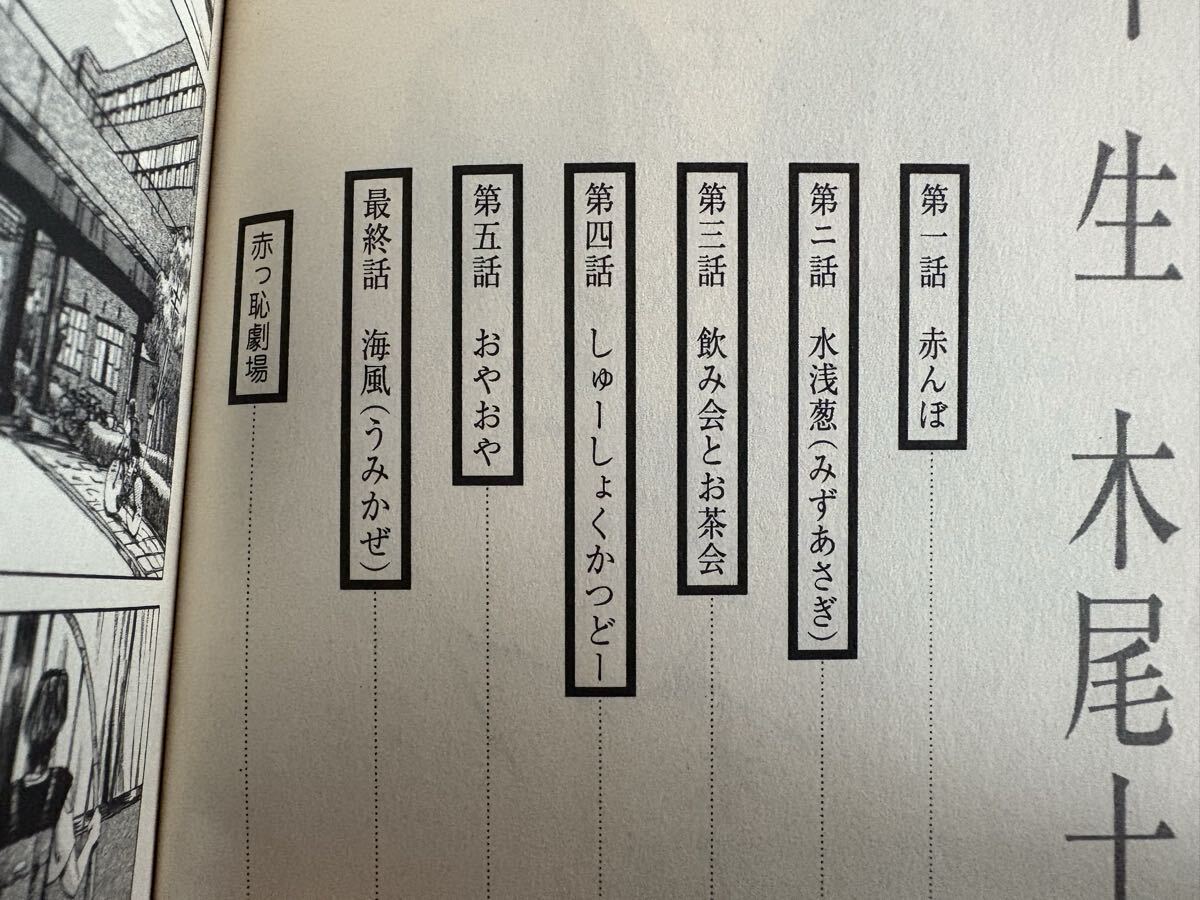 生 木尾士
第一話 赤んぼ
第二話 水浅葱(みずあさぎ)
第三話 飲み会とお茶会
第四話 しゅーしょくかつどー
第五話 おやおや
最終話 海風(うみかぜ)
赤っ恥劇場